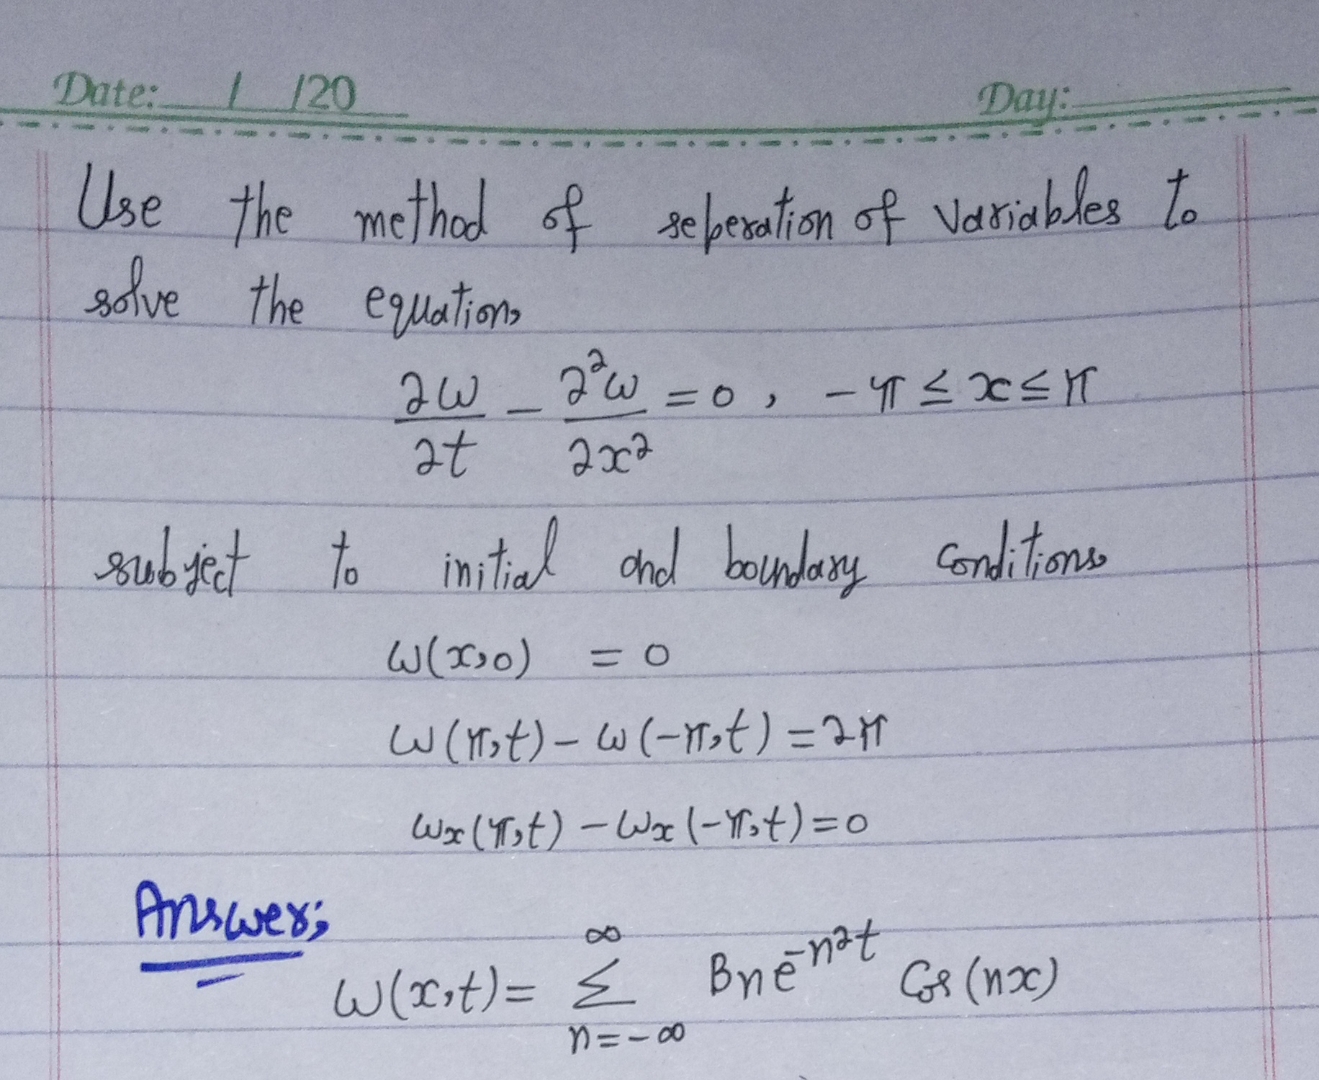 Date: / /20 Day:
Use the method of seberation of variables to
solve the equation,
∂ω/∂t - ∂²ω/∂x² = 0, -π ≤ x ≤ π
subject to initial and boundary conditions
ω(x,0) = 0
ω(π,t) - ω(-π,t) = 2π
ωx(π,t) - ωx(-π,t) = 0
Answer;
ω(x,t) = ∑_{n=-∞}^{∞} Bn e^{-n²t} Cos(nx)